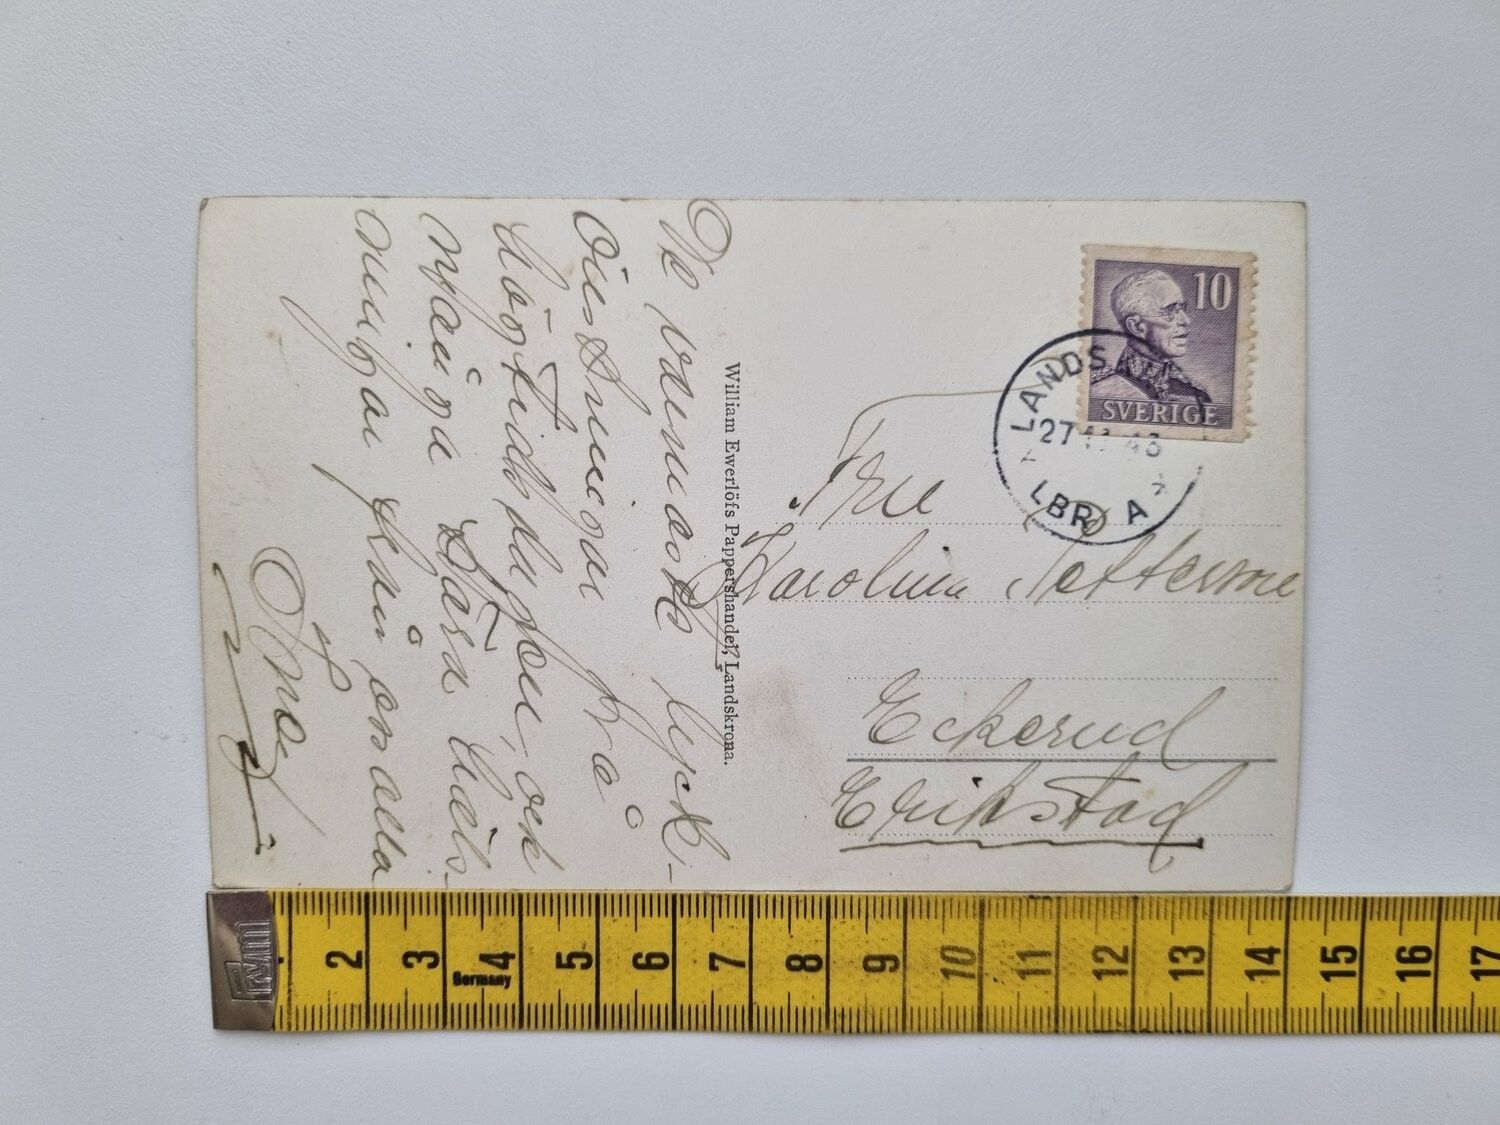 De varmaste lyck-
önskningar på
högtidsdagen, och
många kära häls-
ningar från oss alla
William Ewerlöfs Pappershandel, Landskrona.
10
SVERIGE
LANDS
27 43
LBR A
Fru
Karolina
Eckerud
Erikstad
Prym
2 3 4 5 6 7 8 9 10 11 12 13 14 15 16 17
Germany